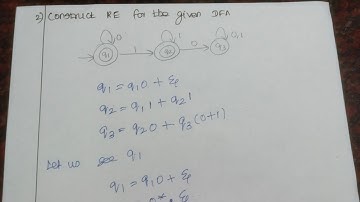 2) Construct RE for the given DFA
0 1 0,1
q1 1 q2 0 q3
q1 = q10 + ε
q2 = q11 + q21
q3 = q20 + q3(0+1)
Let us see q1
q1 = q10 + ε